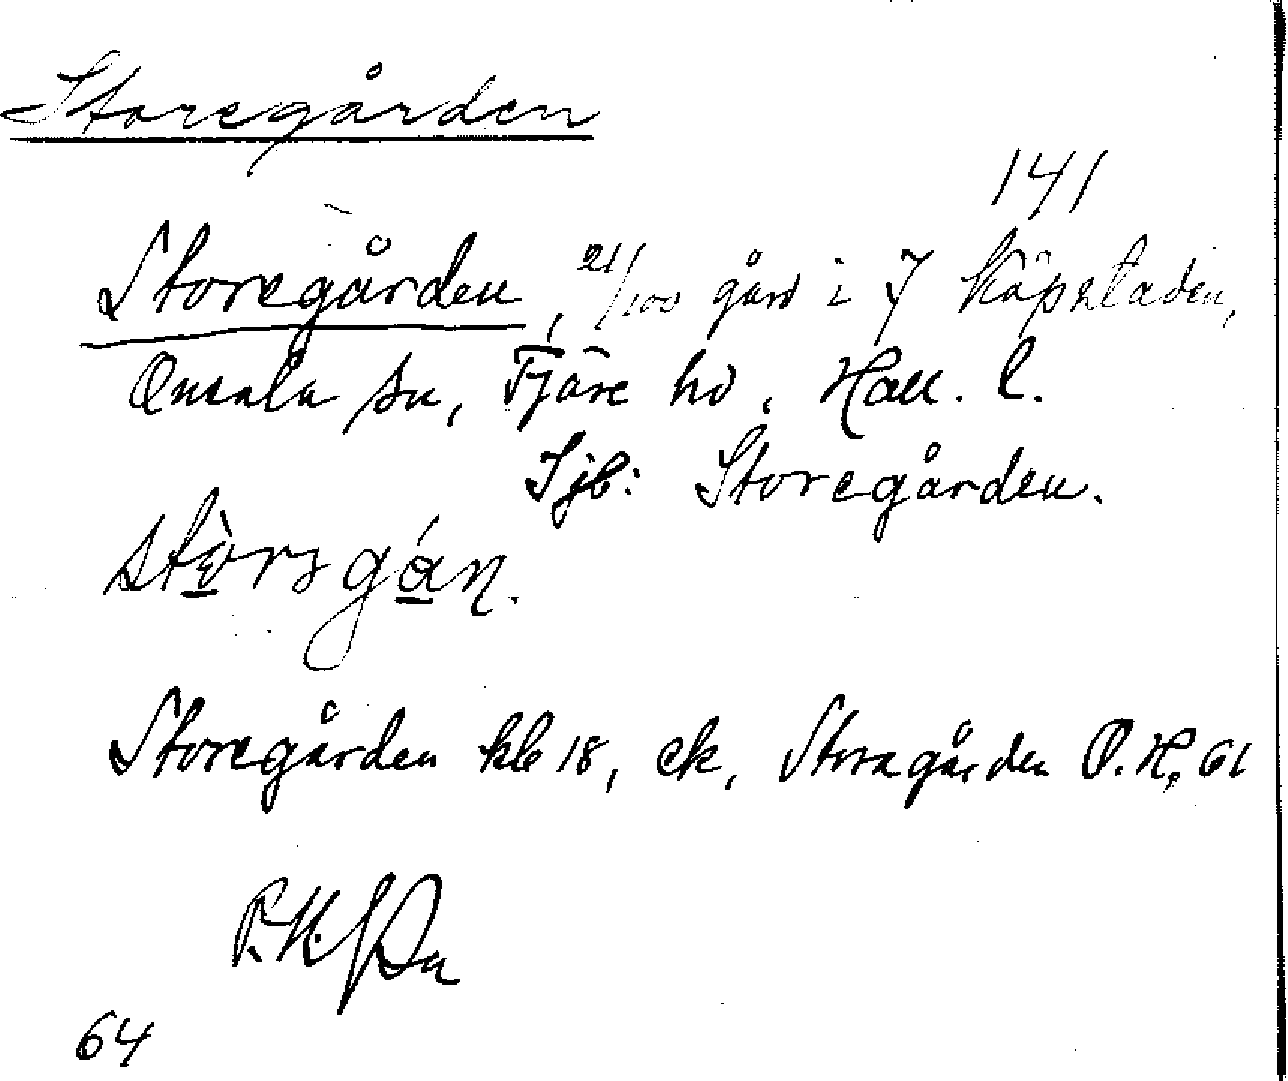 Storegården
141
Storegården, 21/100 gård i 7 Köpstaden,
Onsala sn, Fjäre hd, Hall. l.
Ijb: Storegården.
Storegården kb 18, ek, Storagården P.H. 61
P.H.
64